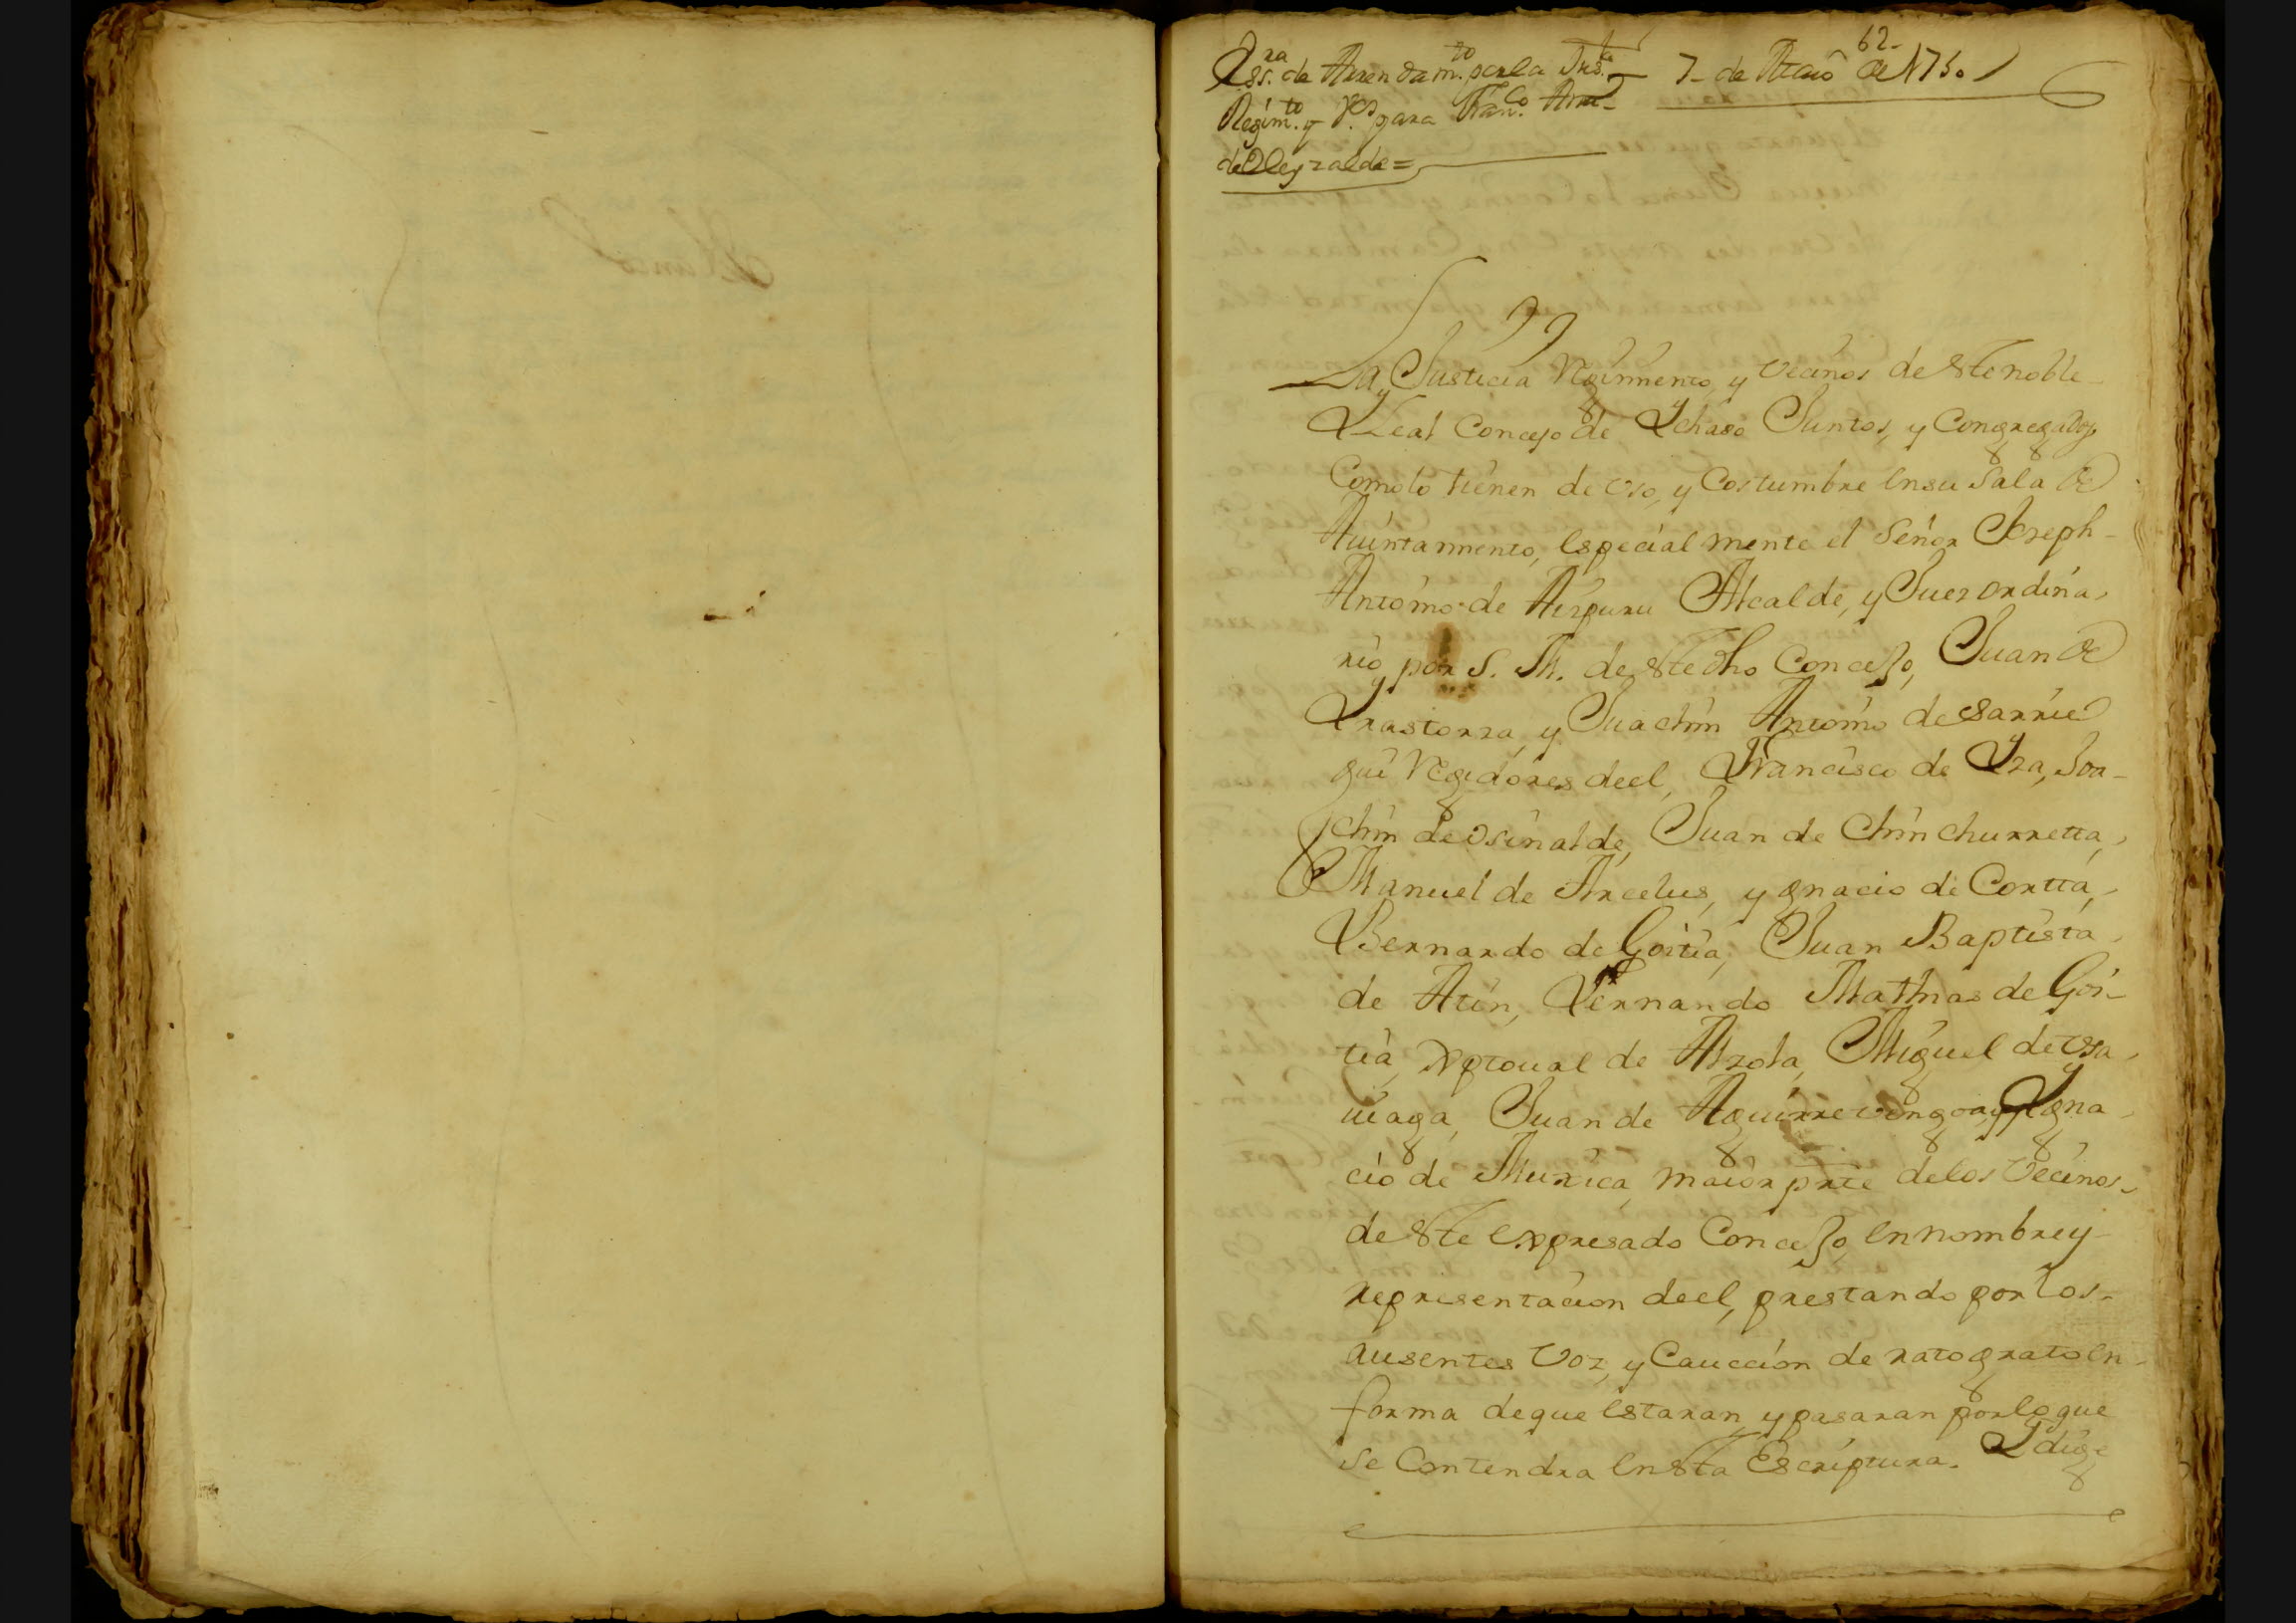 62
Ess.ra de Arrendam.to por la Jus.a
7 de Maio de 1730
Regim.to y V.os para Fran.co Ant.
de Oleyzalde =
La Justicia Regimiento, y vecinos de este noble
y Leal Concejo de Ychaso Juntos, y Congregados
Como lo tienen de vso, y Costumbre en su Sala de
Aiuntamiento, especial mente el Señor Joseph
Antonio de Aizpuru Alcalde, y Juez ordina
rio por S. M. de este dho Concejo, Juan de
Yrastorza, y Juachin Antonio de Sarrie
gui Regidores de el, Francisco de Yza, Joa
chin de Osinalde, Juan de Chinchurretta,
Manuel de Arcelus, Ygnacio de Cortta,
Bernardo de Goitia, Juan Baptista
de Atin, Fernando Mathias de Goi
tia, Xptoual de Alzola, Miguel de vsa
uiaga, Juan de Aguirrevengoa, y Ygna
cio de Muxica, maior prte de los vecinos
de este expresado Concejo, en nombre y
representacion de el, prestando por los
ausentes voz, y Caucion de rato grato en
forma de que estaran, y pasaran por lo que
se Contendra en esta Escriptura. Y dige